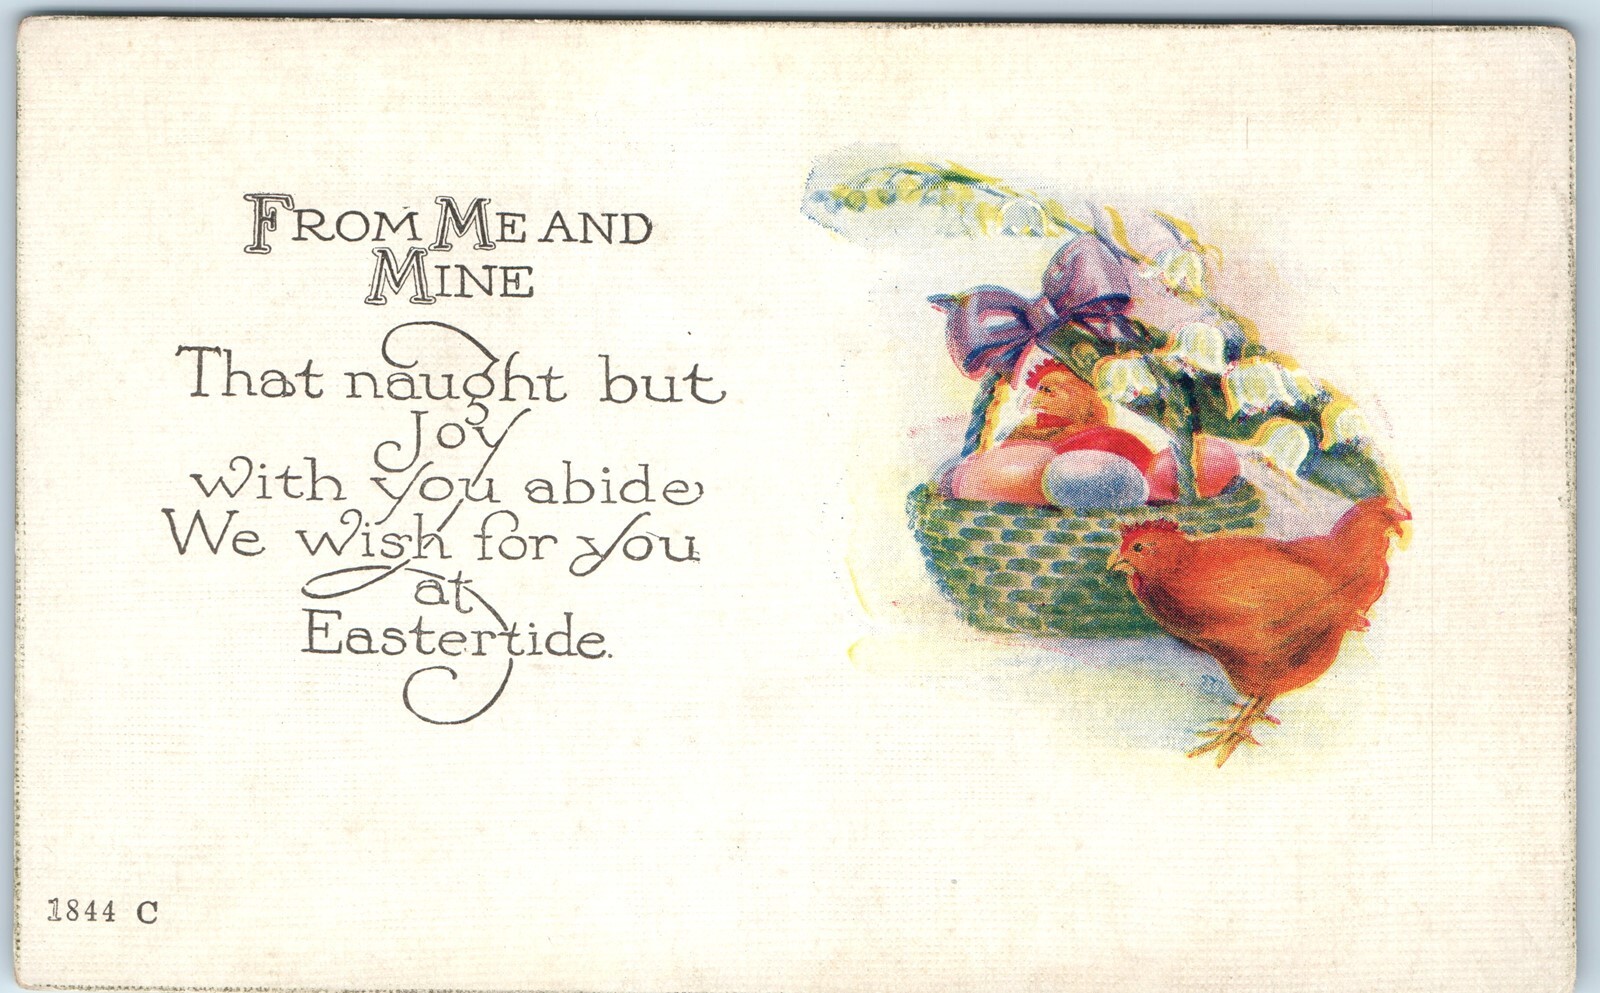 FROM ME AND
MINE
That naught but
Joy
with you abide
We wish for you
at
Eastertide.
1844 C